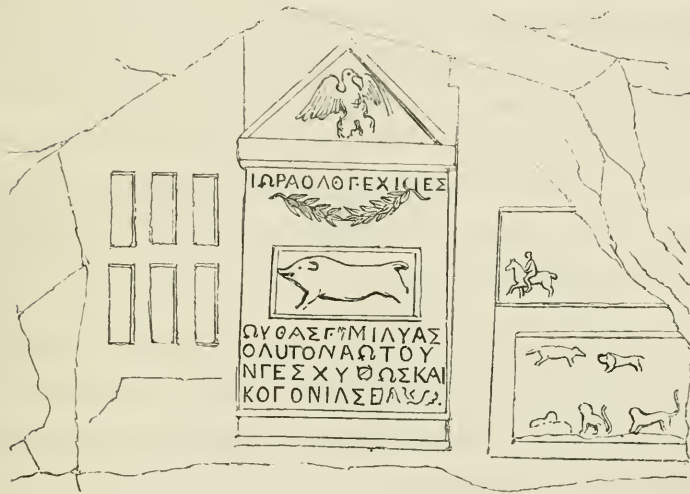 ΙΩΡΑΟΛΟΓΕΧΙΙΕΣ
ΩΥΘΑΣΓΜΙΛΥΑΣ
ΟΛUΤΟΝΑΩΤΟΥ
ΝΓΕΣΧΥΘΩΣΚΑΙ
ΚΟΓΟΝΙΛΣ